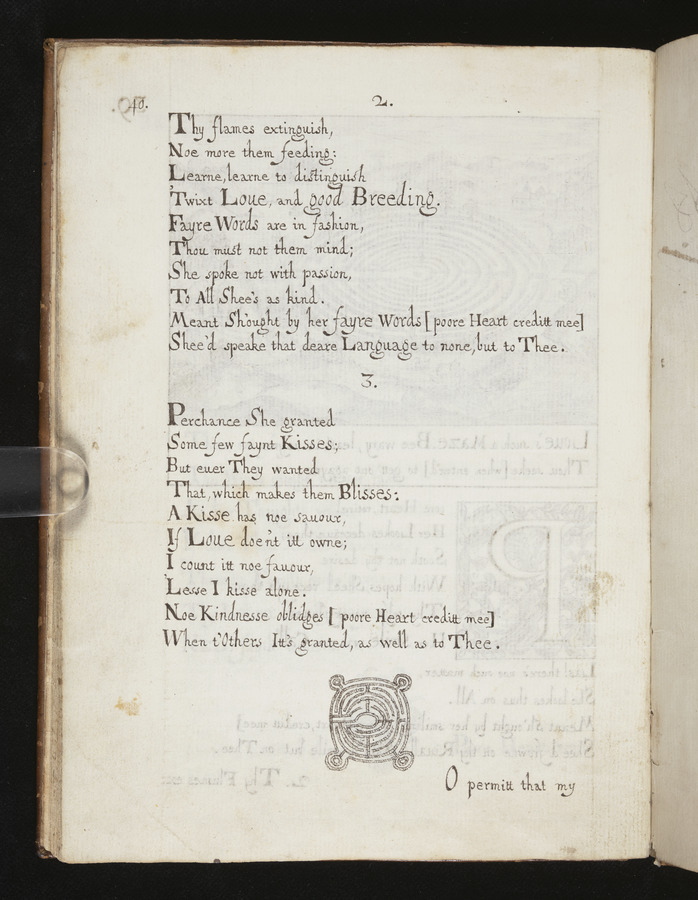 40.
2.
Thy flames extinguish,
Noe more them feeding:
Learne, learne to distinguish
'Twixt Loue, and good Breeding.
Fayre Words are in fashion,
Thou must not them mind;
She spoke not with passion,
To All Shee's as kind.
Meant Sh'ought by her fayre Words [poore Heart creditt mee]
Shee'd speake that deare Language to none, but to Thee.
3.
Perchance She granted
Some few faynt Kisses;
But euer They wanted
That, which makes them Blisses:
A Kisse has noe sauour,
If Loue doe'nt itt owne;
I count itt noe fauour,
Lesse I kisse alone.
Noe Kindnesse oblidges [poore Heart creditt mee]
When t'Others Itt's granted, as well as to Thee.
O permitt that my